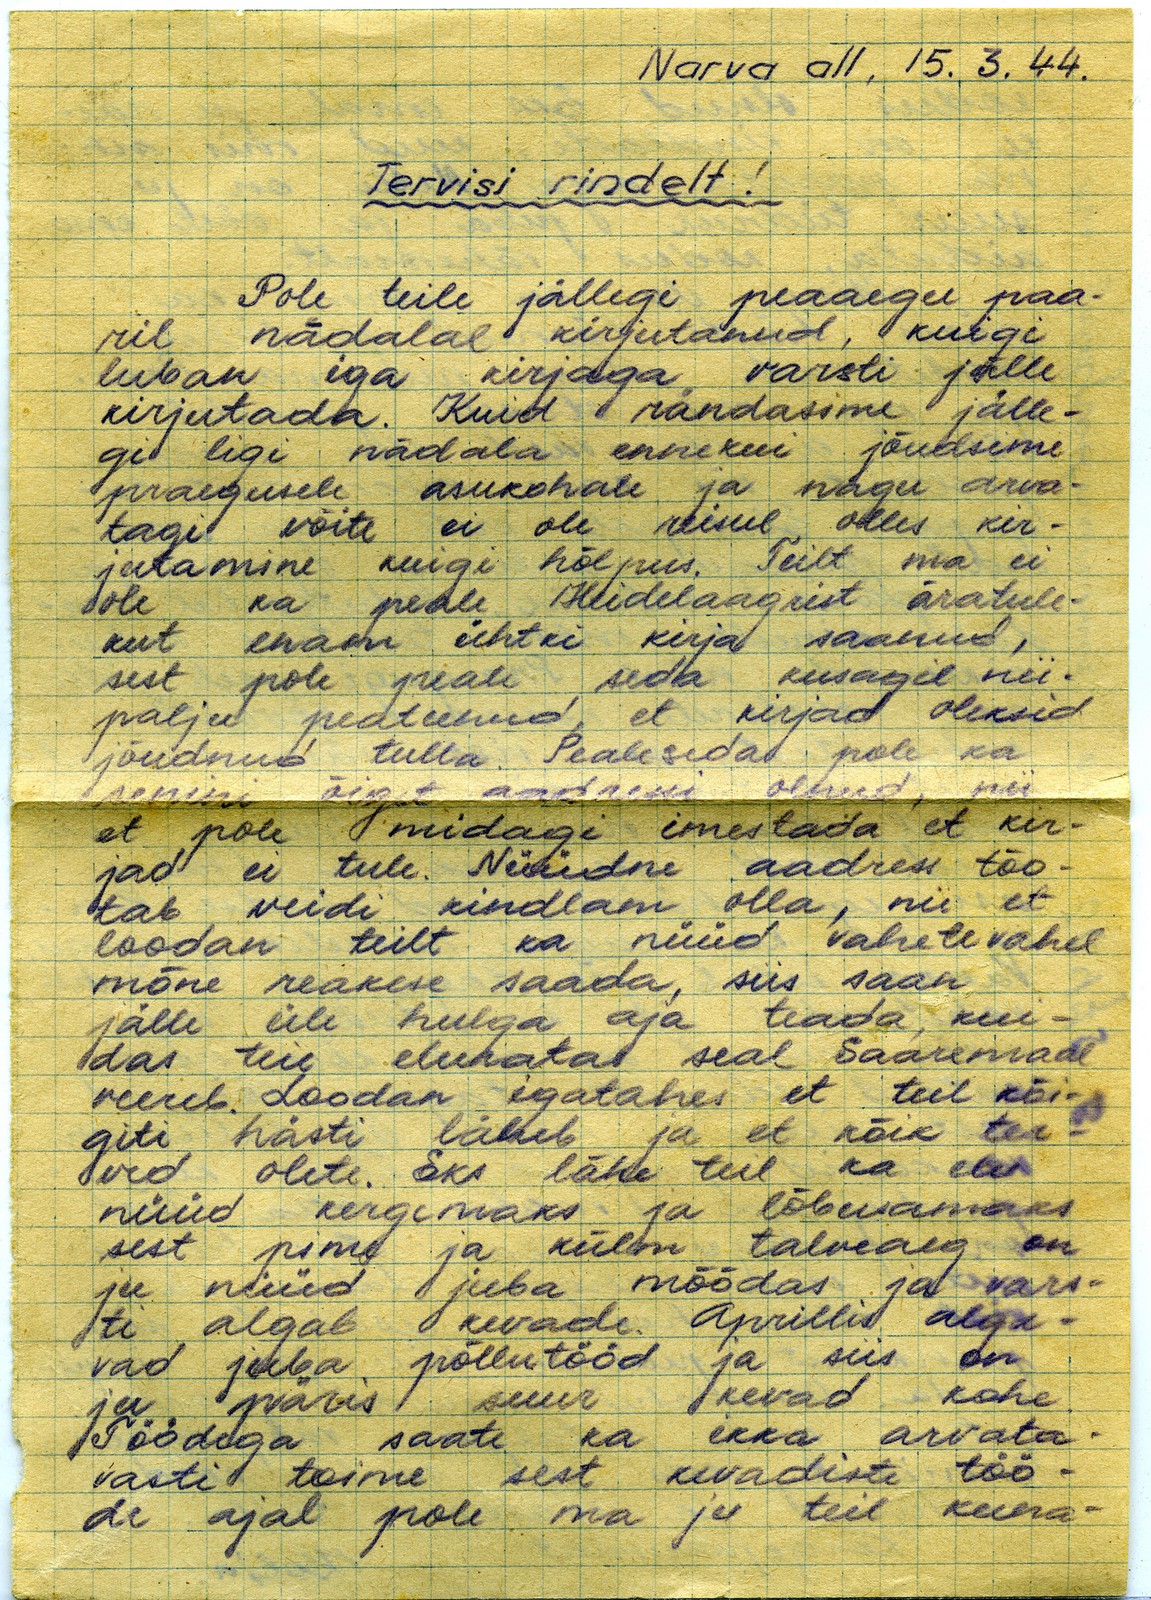 Narva all, 15. 3. 44.
Tervisi rindelt!
Pole teile jällegi peaaegu paa-
ril nädalal kirjutanud, kuigi
luban iga kirjaga varsti jälle
kirjutada. Kuid rändasime jälle-
gi ligi nädala ennekui jõudsime
praegusele asukohale ja nagu arva-
tagi võite ei ole reisul olles kir-
jutamine kuigi hõlpus. Teilt ma ei
ole ka peale Heidelaagrist äratule-
kut enam ühtki kirja saanud,
sest pole peale seda kusagil nii-
palju peatunud, et kirjad oleksid
jõudnud tulla. Pealeseda pole ka
senini õiget aadressi olnud, nii
et pole midagi imestada et kir-
jad ei tule. Nüüdne aadress tõo-
tab veidi kindlam olla, nii et
loodan teilt ka nüüd vahetevahel
mõne reakese saada, siis saan
jälle üle hulga aja teada, kui-
das teie eluratas seal Saaremaal
veereb. Loodan igatahes et teil kõi-
giti hästi läheb ja et kõik ter-
ved olete. Eks lähe teil ka elu
nüüd kergemaks ja lõbusamaks
sest pime ja külm talveaeg on
ju nüüd juba möödas ja vars-
ti algab kevade. Aprillis alga-
vad juba põllutööd ja siis on
ju päris suur kevad kohe.
Töödega saate ka ikka arvata-
vasti toime sest kevadiste töö-
de ajal pole ma ju teil kuna-